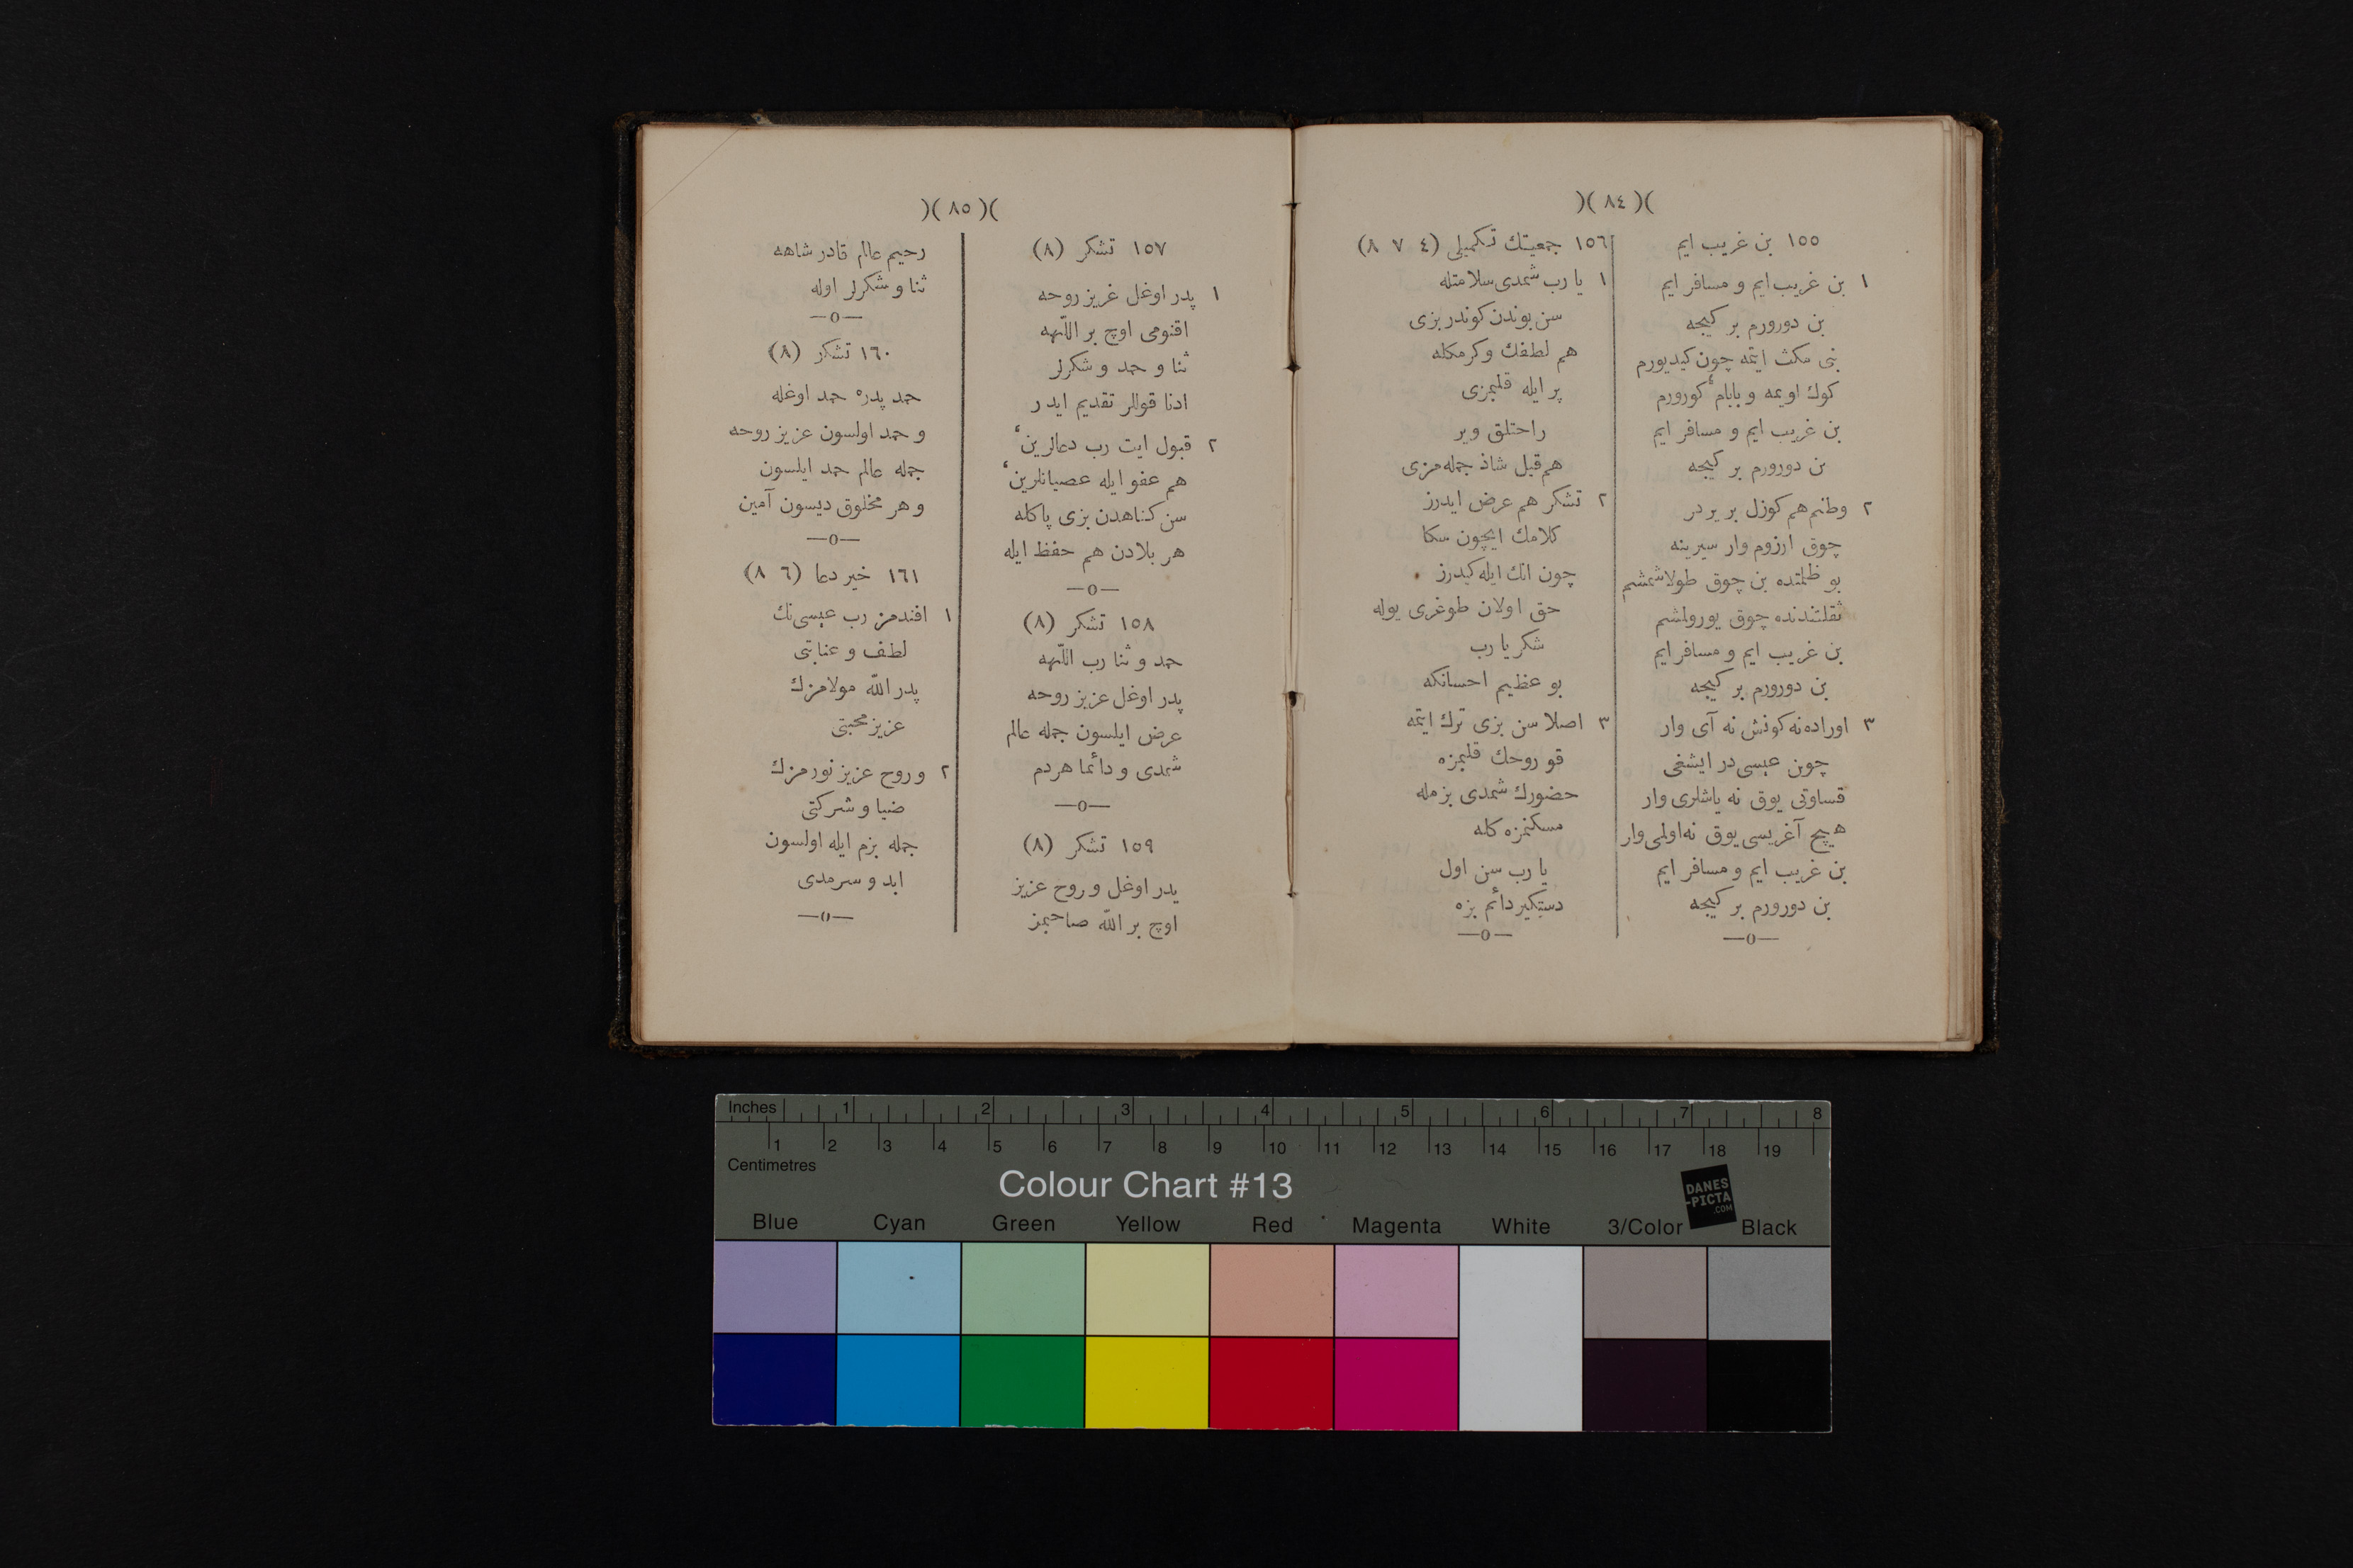 )( ٨٤ )(
١٥٥ بن غريب ايم
١ بن غريب ايم و مسافر ايم
بن دورورم بر كيجه
بنى مكث ايتمه چون كيديورم
كوك اويمه و بابامٔ كورورم
بن غريب ايم و مسافر ايم
بن دورورم بر كيجه
٢ وطنم هم كوزل بر يردر
چوق ارزوم وار سيرينه
بو ظلمتده بن چوق طولاشمشم
ثقلتندنده چوق يورولمشم
بن غريب ايم و مسافر ايم
بن دورورم بر كيجه
٣ اوراده نه كونش نه آى وار
چون عيسى در ايشغى
قساوتى يوق نه ياشلرى وار
هيچ آغريسى يوق نه اولمى وار
بن غريب ايم و مسافر ايم
بن دورورم بر كيجه
—٥—
١٥٦ جمعيتك تكميلى (٤ ٧ ٨)
١ يا رب شمدى سلامتله
سن بوندن كوندر بزى
هم لطفك وكرمكله
پر ايله قلبمزى
راحتلق وير
هم قيل شاذ جمله مزى
٢ تشكر هم عرض ايدرز
كلامك ايچون سكا
چون انك ايله كيدرز
حق اولان طوغرى يوله
شكر يا رب
بو عظيم احسانكه
٣ اصلا سن بزى ترك ايتمه
قو روحك قلبمزه
حضورك شمدى بزمله
مسكنمزه كله
يا رب سن اول
دستكير دائم بزه
—٥—
)( ٨٥ )(
١٥٧ تشكر (٨)
١ پدر اوغل غريز روحه
اقنومى اوچ بر اللّهه
ثنا و حمد و شكرلر
ادنا قوللر تقديم ايدر
٢ قبول ايت رب دعالرينٔ
هم عفو ايله عصيانلرينٔ
سن كناهدن بزى پاكله
هر بلادن هم حفظ ايله
—٥—
١٥٨ تشكر (٨)
حمد و ثنا رب اللّهه
پدر اوغل عزيز روحه
عرض ايلسون جمله عالم
شمدى و دائما هردم
—٥—
١٥٩ تشكر (٨)
پدر اوغل و روح عزيز
اوچ بر اللّه صاحبمز
رحيم عالم قادر شاهه
ثنا و شكرلر اوله
—٥—
١٦٠ تشكر (٨)
حمد پدره حمد اوغله
و حمد اولسون عزيز روحه
جمله عالم حمد ايلسون
و هر مخلوق ديسون آمين
—٥—
١٦١ خير دعا (٦ ٨)
١ افندمز رب عيسى نك
لطف و عنايتى
پدر اللّه مولامزك
عزيز محبتى
٢ و روح عزيز نورمزك
ضيا و شركتى
جمله بزم ايله اولسون
ابد و سرمدى
—٥—
Inches 1 2 3 4 5 6 7 8
1 2 3 4 5 6 7 8 9 10 11 12 13 14 15 16 17 18 19
Centimetres
Colour Chart #13
DANES
-PICTA
.COM
Blue Cyan Green Yellow Red Magenta White 3/Color Black